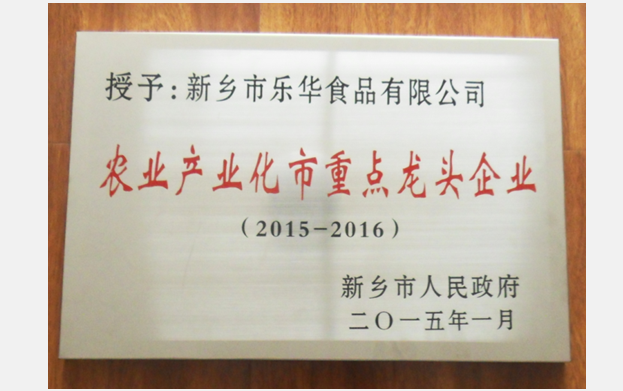 授予:新乡市乐华食品有限公司
农业产业化市重点龙头企业
(2015-2016)
新乡市人民政府
二〇一五年一月